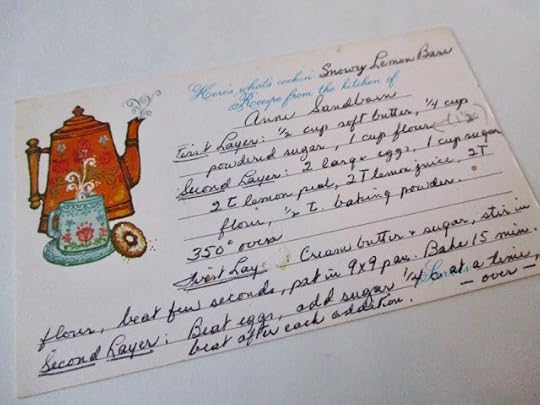 Here's what's cookin' Snowy Lemon Bars
Recipe from the kitchen of
Anne Sandborn
First Layer: ½ cup soft butter, ¼ cup
powdered sugar, 1 cup flour
Second Layer: 2 large eggs, 1 cup sugar
2 T lemon peel, 2T lemon juice, 2T
flour, ½ t. baking powder.
350° oven
First Lay Cream butter & sugar, stir in
flour, beat few seconds, pat in 9x9 pan. Bake 15 min.
Second Layer: Beat eggs, add sugar ¼ c at a time,
beat after each addition. — over —